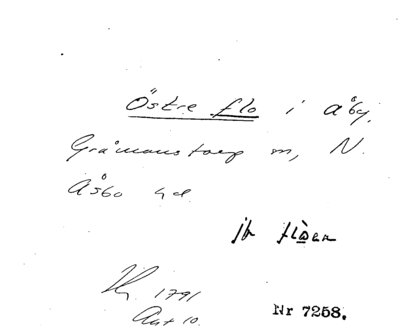 Östre flo i Åby,
Gråmanstorp m, N.
Åsbo hd.
jh flòen
1791
Akt 10.
Nr 7258.